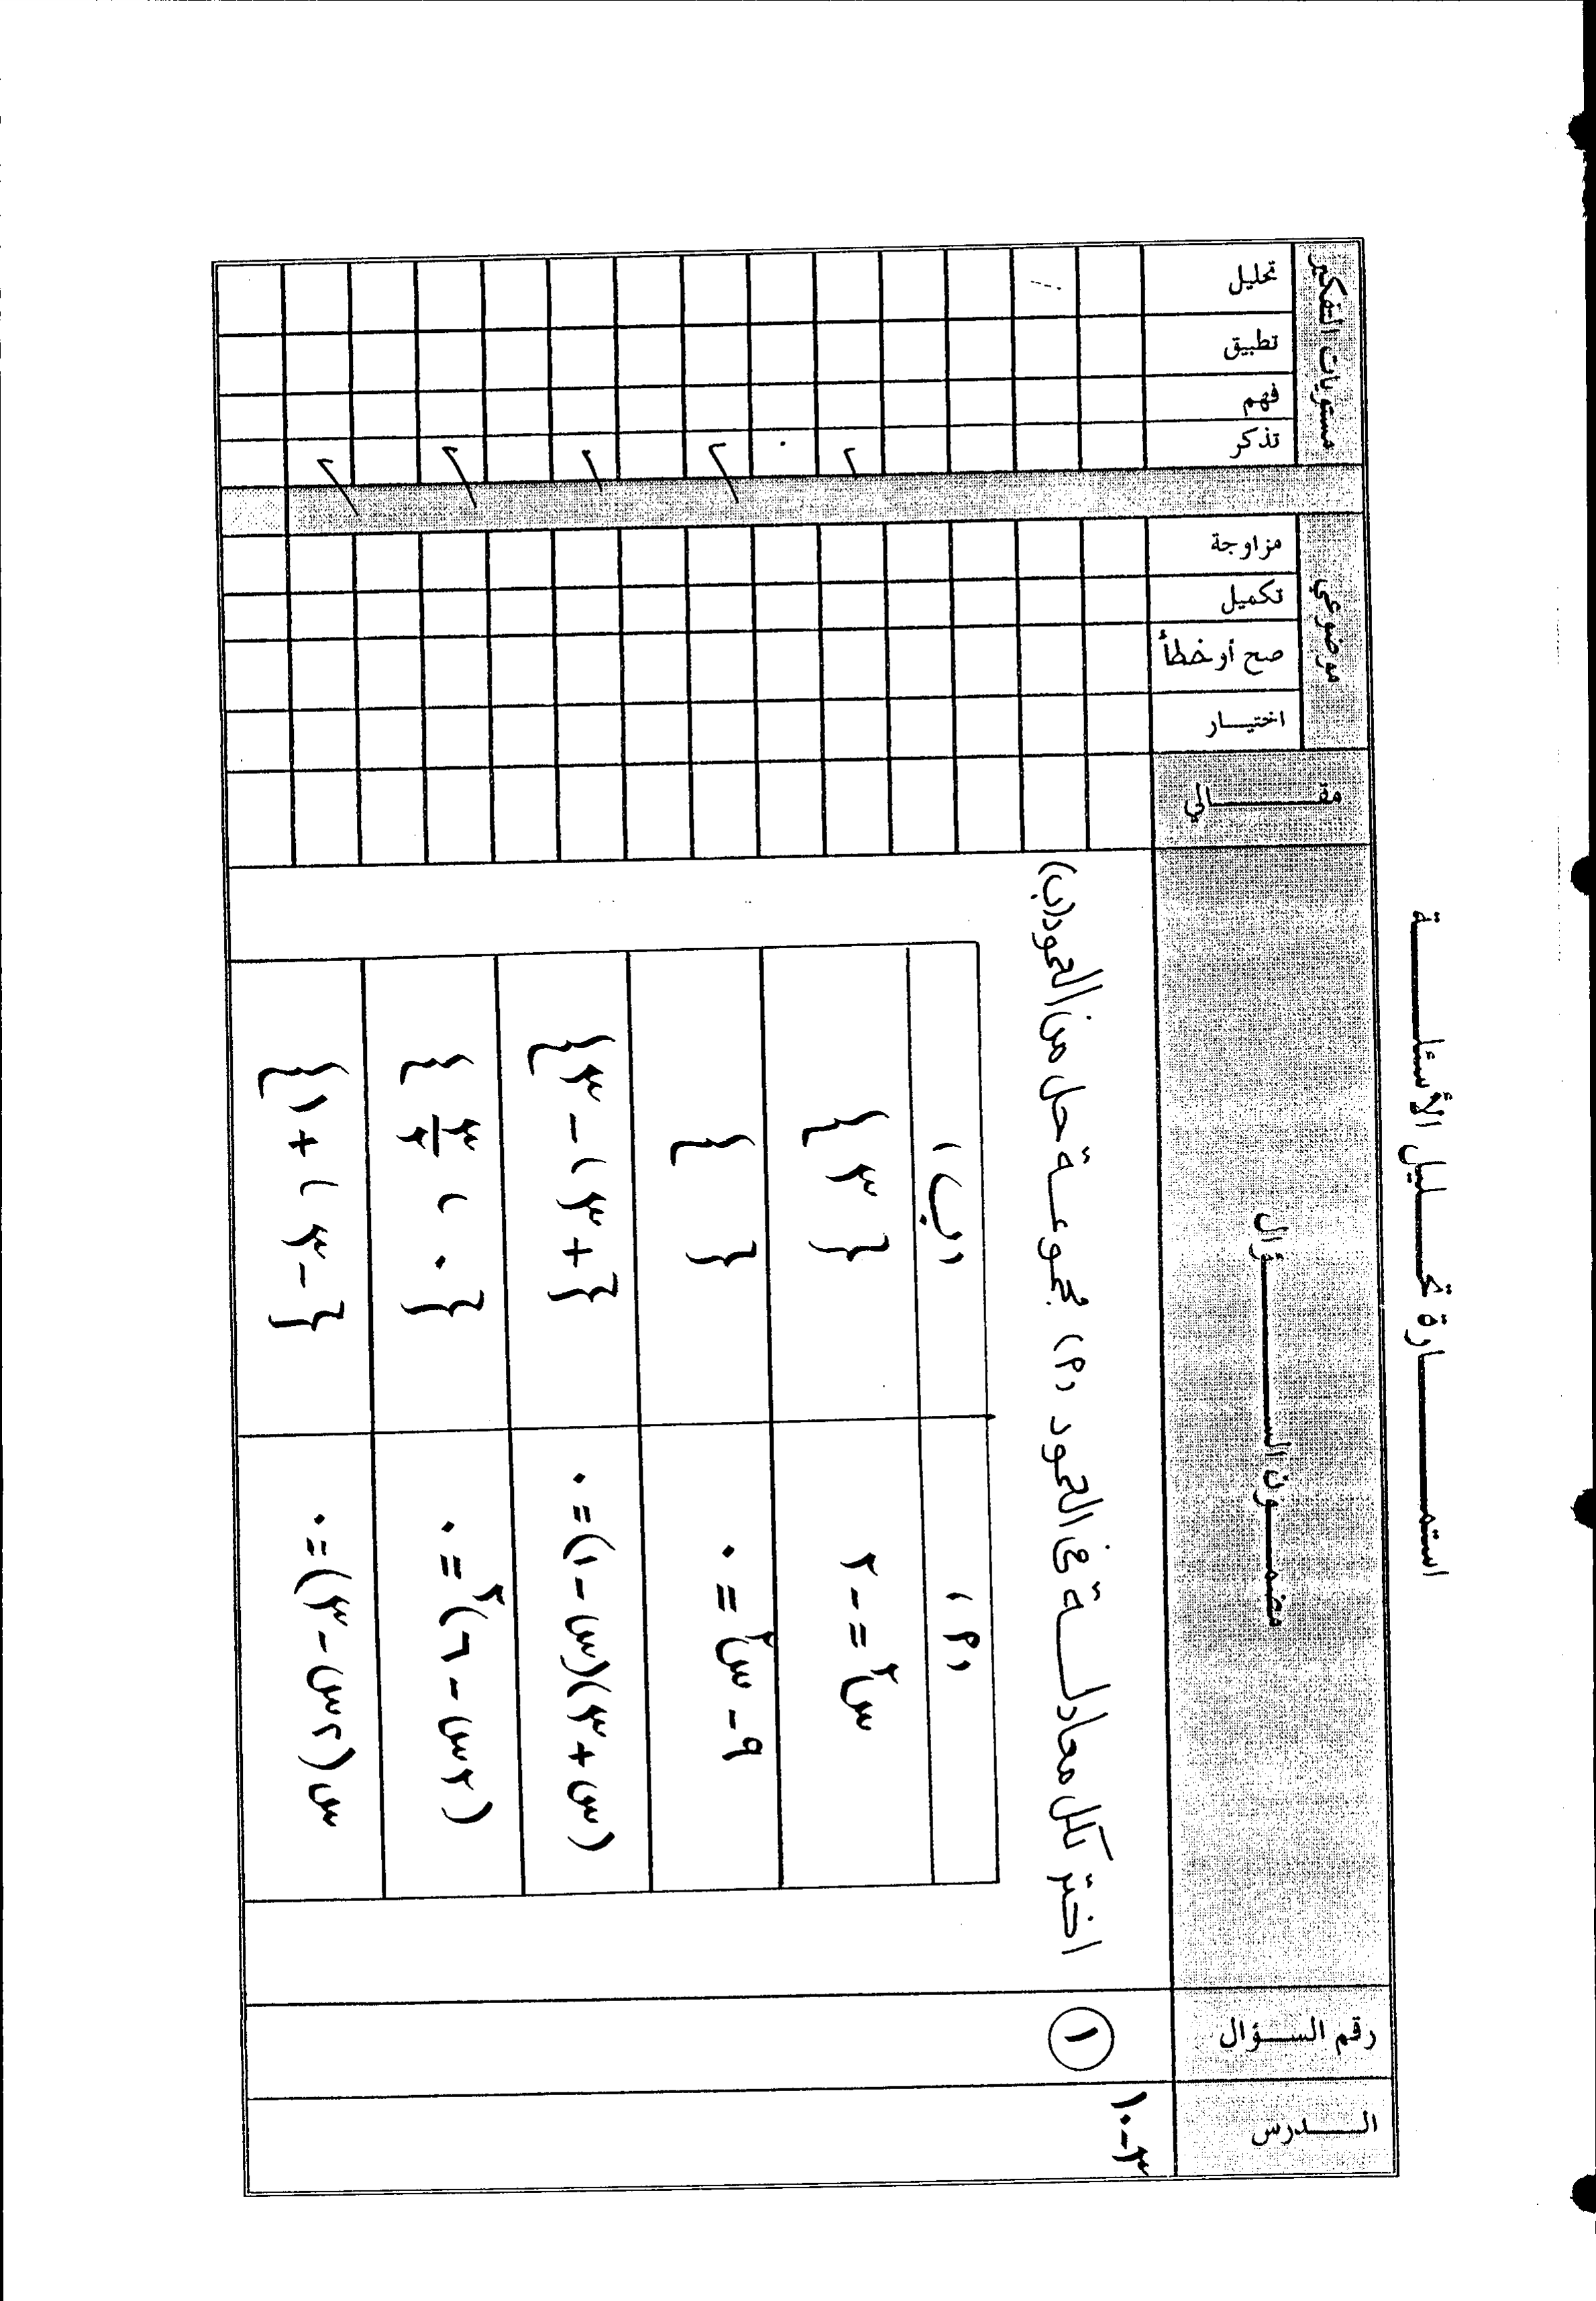 استمارة تحليل الأسئلة
الدرس | رقم السؤال | مضمون السؤال | مقالي | موضوعي | مستويات التفكير
اختيار | صح أو خطأ | تكميل | مزاوجة | تذكر | فهم | تطبيق | تحليل
٣-١٠ | ١ | اختر لكل معادلة في العمود (٢) مجموعة حل من العمود (ب)
(٢) | (ب)
س٢ = -٢ | { ٣ }
٩ - س٢ = ٠ | { }
(س + ٣)(س - ١) = ٠ | {+٣ ، -٣}
(٢س - ٦)٢ = ٠ | {٠ ، ٣/٢}
س(٢س - ٣) = ٠ | {-٣ ، +١}